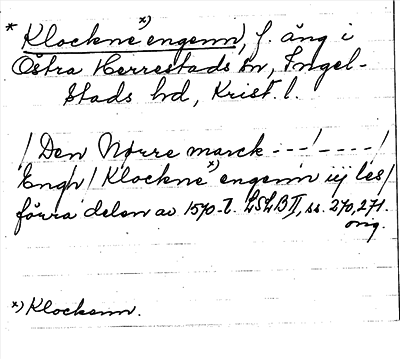 * Klockne x) engenn, f. äng i
Östra Herrestads sn, Ingel-
stads hd, Krist. l.
/ Den Nørre marck - - - / - - - - /
Engh / Klockne x) engenn iij les /
förra delen av 1570-t. LSLB II, ss. 270, 271.
orig.
x) Klockenn.